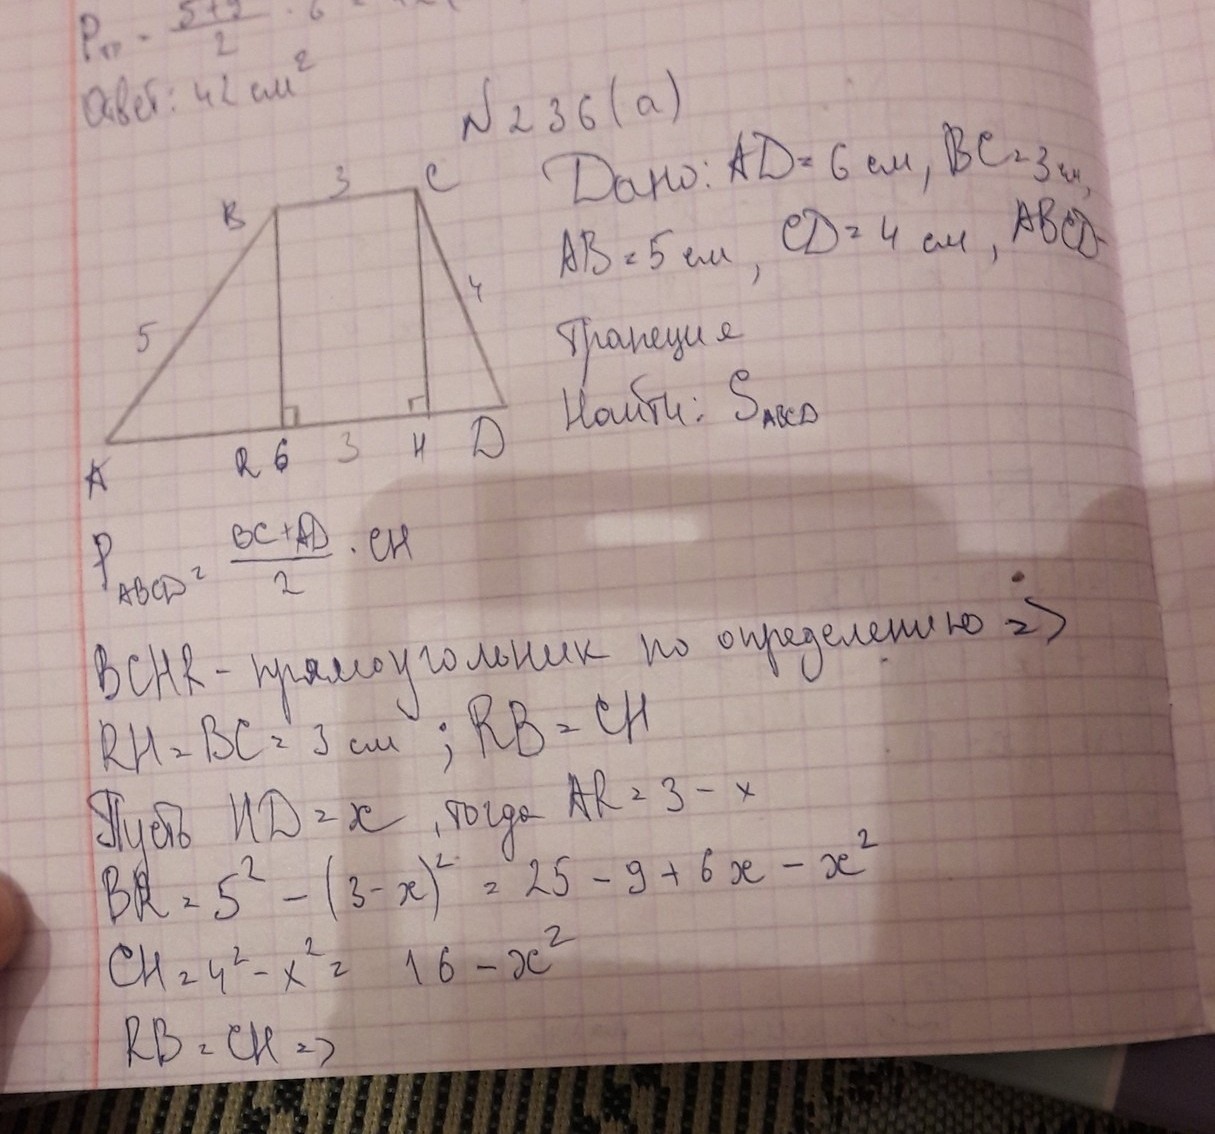 5+9
P = ― · 6 =
2
Ответ: 42 см²
N 236(а)
Дано: AD = 6 см, BC = 3 см,
AB = 5 см, CD = 4 см, ABCD-
трапеция
Найти: S ABCD
B 3 C
5 4
A R 6 3 H D
P ABCD = BC+AD / 2 · CH
BCHR - прямоугольник по определению =>
RH = BC = 3 см ; RB = CH
Пусть HD = x, тогда AR = 3 - x
BR = 5² - (3-x)² = 25 - 9 + 6x - x²
CH = 4² - x² = 16 - x²
RB = CH =>